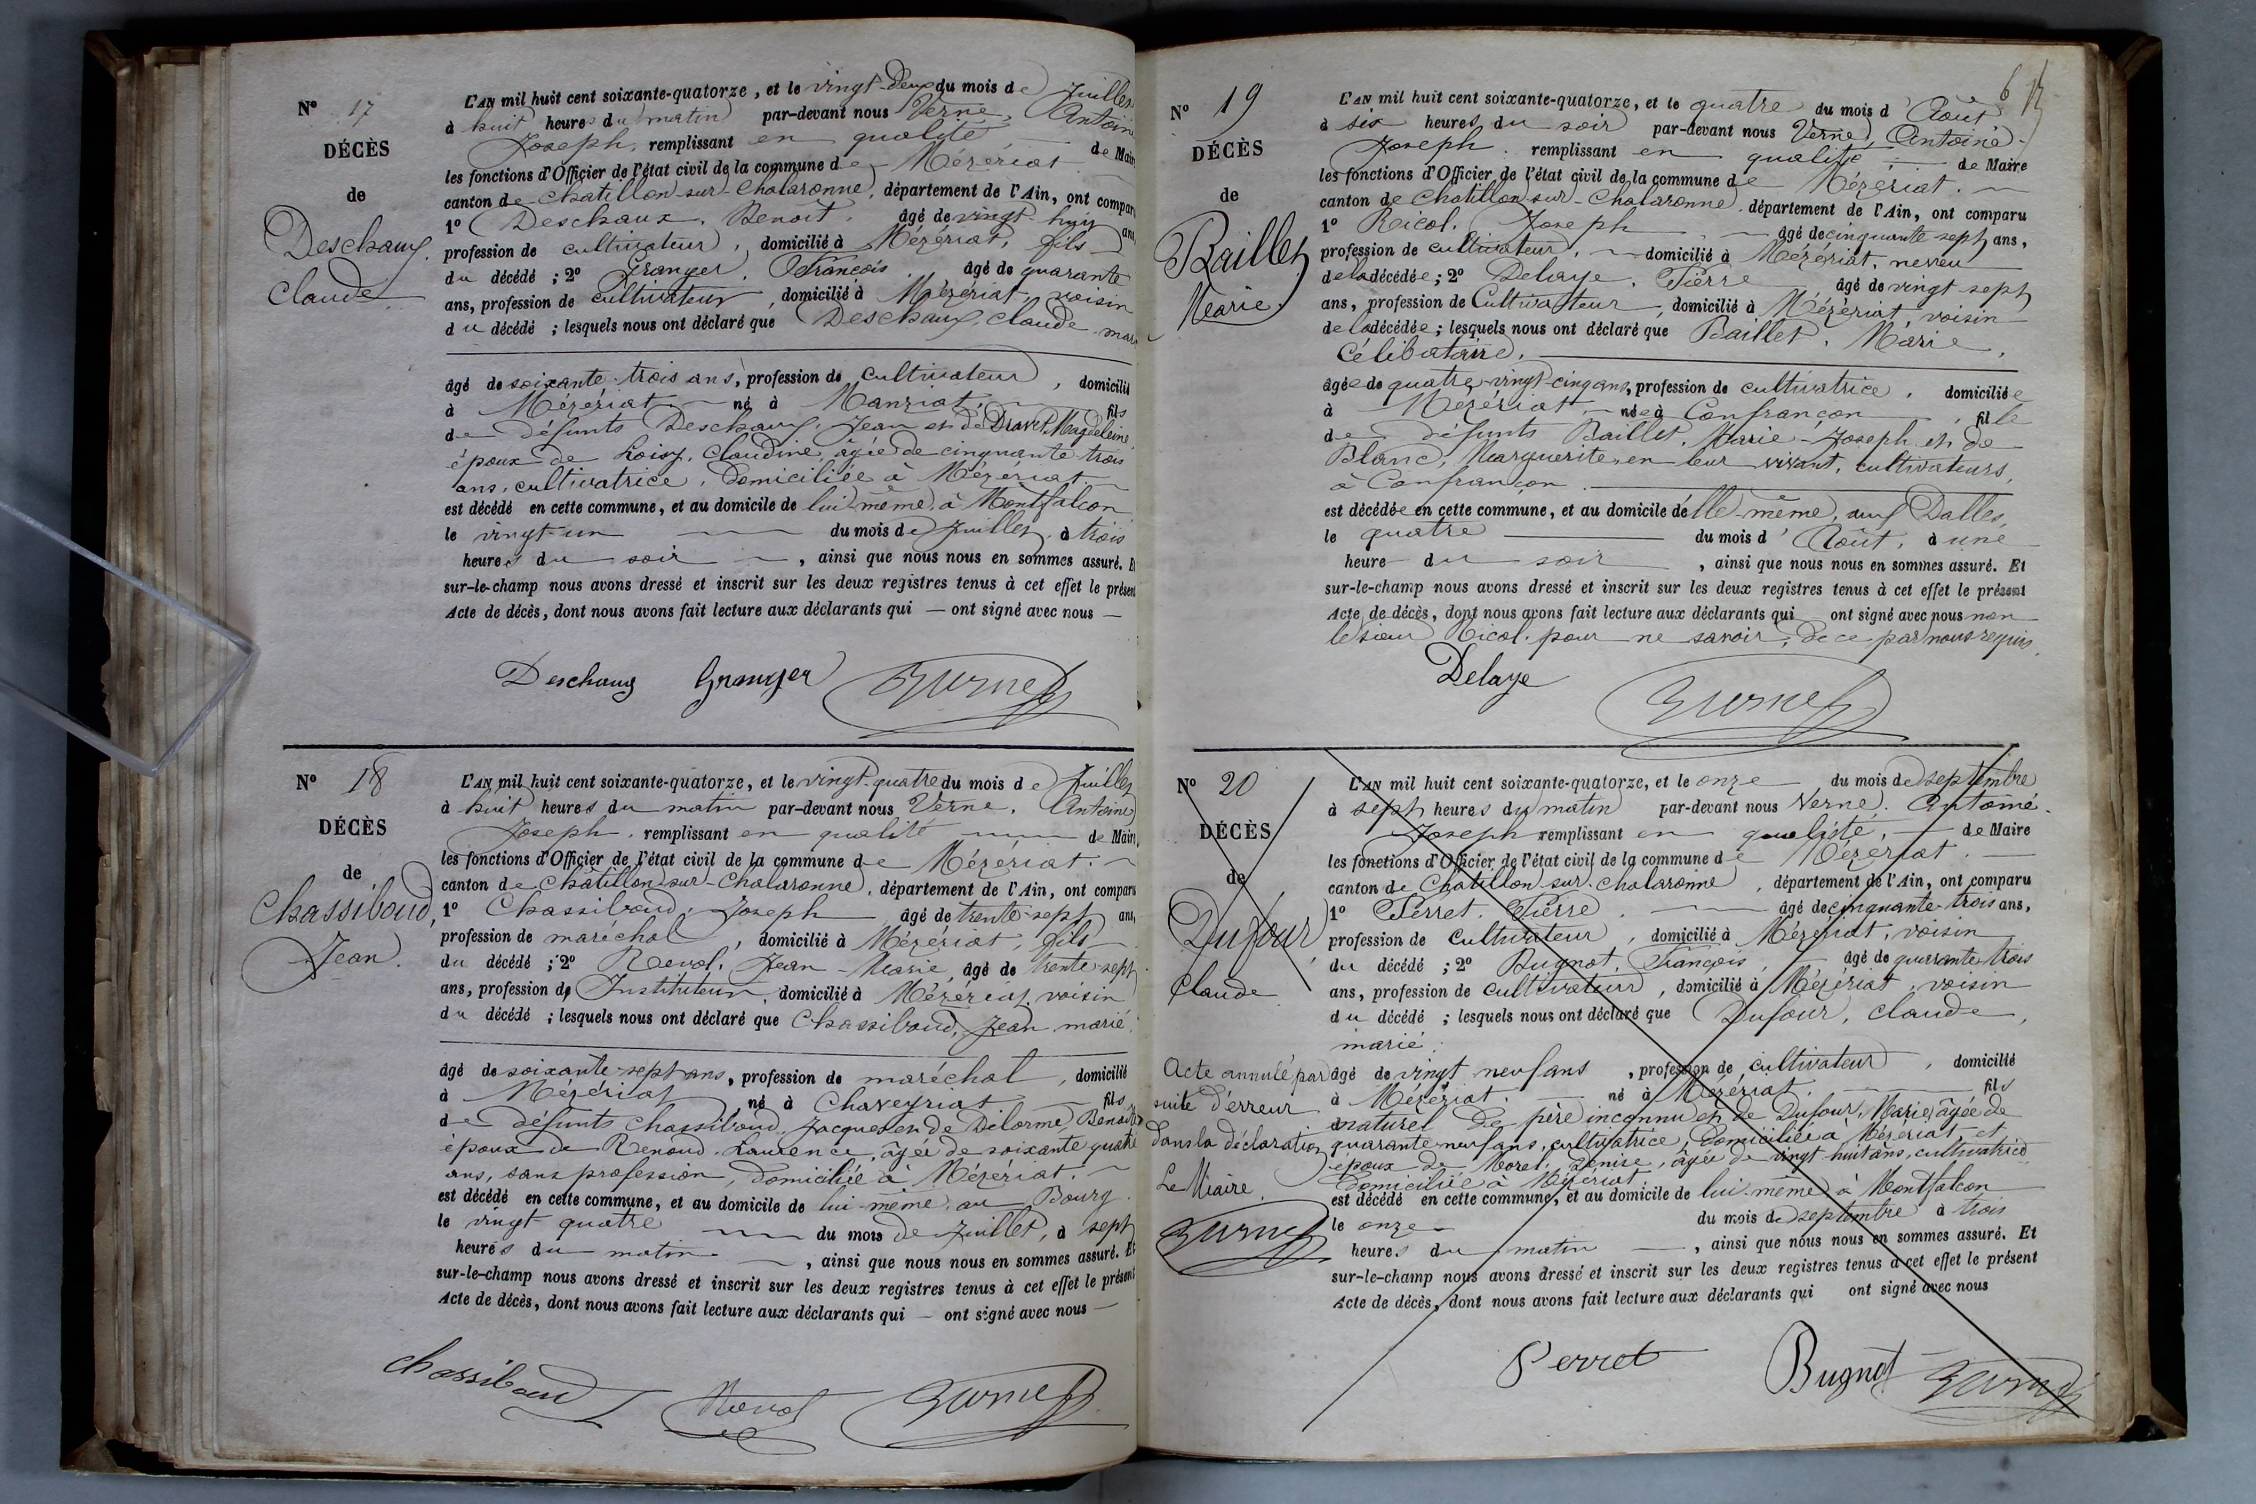 N° 17
DÉCÈS
de
Deschaux
Claude
L'AN mil huit cent soixante-quatorze, et le vingt-deux du mois de Juillet
à huit heures du matin par-devant nous Verne, Antoine
Joseph, remplissant en qualité de Maire
les fonctions d'Officier de l'état civil de la commune de Mézériat
canton de Chatillon-sur-Chalaronne, département de l'Ain, ont comparu
1° Deschaux, Benoît, âgé de vingt-huit ans,
profession de cultivateur, domicilié à Mézériat, fils
du décédé ; 2° Granger, François, âgé de quarante
ans, profession de Cultivateur, domicilié à Mézériat, voisin
du décédé ; lesquels nous ont déclaré que Deschaux, Claude, mari
âgé de soixante-trois ans, profession de cultivateur, domicilié
à Mézériat né à Manziat, fils
de défunts Deschaux, Jean et de Magdeleine
époux de Loisy, Claudine, âgée de cinquante trois
ans, cultivatrice, domiciliée à Mézériat
est décédé en cette commune, et au domicile de lui-même, à Montfalcon
le vingt-un du mois de Juillet, à trois
heures du soir, ainsi que nous nous en sommes assuré. Et
sur-le-champ nous avons dressé et inscrit sur les deux registres tenus à cet effet le présent
Acte de décès, dont nous avons fait lecture aux déclarants qui — ont signé avec nous —
Deschaux Granger Verne
N° 18
DÉCÈS
de
Chassiboud,
Jean.
L'AN mil huit cent soixante-quatorze, et le vingt-quatre du mois de Juillet
à huit heures du matin par-devant nous Verne, Antoine
Joseph, remplissant en qualité de Maire
les fonctions d'Officier de l'état civil de la commune de Mézériat.
canton de Châtillon-sur-Chalaronne, département de l'Ain, ont comparu
1° Chassiboud, Joseph âgé de trente-sept ans,
profession de maréchal, domicilié à Mézériat, fils
du décédé ; 2° Revol, Jean-Marie, âgé de trente-sept
ans, profession de Instituteur, domicilié à Mézériat, voisin
du décédé ; lesquels nous ont déclaré que Chassiboud, Jean, marié,
âgé de soixante-sept ans, profession de maréchal, domicilié
à Mézériat né à Chaveyriat fils
de défunts Chassiboud, Jacques et de Delorme, Benoite
époux de Renoud, Laurence, âgée de soixante quatre
ans, sans profession, domiciliée à Mézériat.
est décédé en cette commune, et au domicile de lui-même, au Bourg.
le vingt-quatre du mois de Juillet, à sept
heures du matin, ainsi que nous nous en sommes assuré. Et
sur-le-champ nous avons dressé et inscrit sur les deux registres tenus à cet effet le présent
Acte de décès, dont nous avons fait lecture aux déclarants qui — ont signé avec nous —
Chassiboud Revol Verne
6
N° 19
DÉCÈS
de
Baillet
Marie
L'AN mil huit cent soixante-quatorze, et le quatre du mois d'Août
à six heures du soir par-devant nous Verne, Antoine-
Joseph. remplissant en qualité de Maire
les fonctions d'Officier de l'état civil de la commune de Mézériat.
canton de Chatillon-sur-Chalaronne, département de l'Ain, ont comparu
1° Ricol, Joseph âgé de cinquante sept ans,
profession de cultivateur, domicilié à Mézériat, neveu
de la décédée ; 2° Delaye, Pierre âgé de vingt sept
ans, profession de Cultivateur, domicilié à Mézériat, voisin
de la décédée ; lesquels nous ont déclaré que Baillet, Marie,
Célibataire,
âgée de quatre-vingt-cinq ans, profession de cultivatrice, domiciliée
à Mézériat, née à Confrançon, fille
de défunts Baillet, Marie-Joseph et de
Blanc, Marguerite, en leur vivant, cultivateurs,
à Confrançon.
est décédée en cette commune, et au domicile d'elle-même, aux Dalles,
le quatre du mois d'Août, à une
heure du soir, ainsi que nous nous en sommes assuré. Et
sur-le-champ nous avons dressé et inscrit sur les deux registres tenus à cet effet le présent
Acte de décès, dont nous avons fait lecture aux déclarants qui ont signé avec nous non
le sieur Ricol, pour ne savoir, de ce par nous requis.
Delaye Verne
N° 20
DÉCÈS
de
Dufour
Claude
Acte annulé par
suite d'erreur
dans la déclaration
Le Maire.
Verne
L'AN mil huit cent soixante-quatorze, et le onze du mois de septembre
à sept heures du matin par-devant nous Verne, Antoine-
Joseph remplissant en qualité, de Maire
les fonctions d'Officier de l'état civil de la commune de Mézériat.
canton de Chatillon-sur-Chalaronne, département de l'Ain, ont comparu
1° Perret, Pierre, âgé de cinquante-trois ans,
profession de Cultivateur, domicilié à Mézériat, voisin
du décédé ; 2° Bugnot, François, âgé de quarante-trois
ans, profession de cultivateur, domicilié à Mézériat, voisin
du décédé ; lesquels nous ont déclaré que Dufour, Claude,
marié.
âgé de vingt neuf ans, profession de cultivateur, domicilié
à Mézériat. né à Mézériat. fils
naturel de père inconnu et de Dufour, Marie, âgée de
quarante-neuf ans, cultivatrice, domiciliée à Mézériat, et
époux de Morel, Denise, âgée de vingt huit ans, cultivatrice
domiciliée à Mézériat.
est décédé en cette commune, et au domicile de lui-même à Montfalcon
le onze du mois de septembre à trois
heures du matin, ainsi que nous nous en sommes assuré. Et
sur-le-champ nous avons dressé et inscrit sur les deux registres tenus à cet effet le présent
Acte de décès, dont nous avons fait lecture aux déclarants qui ont signé avec nous
Perret Bugnot Verne